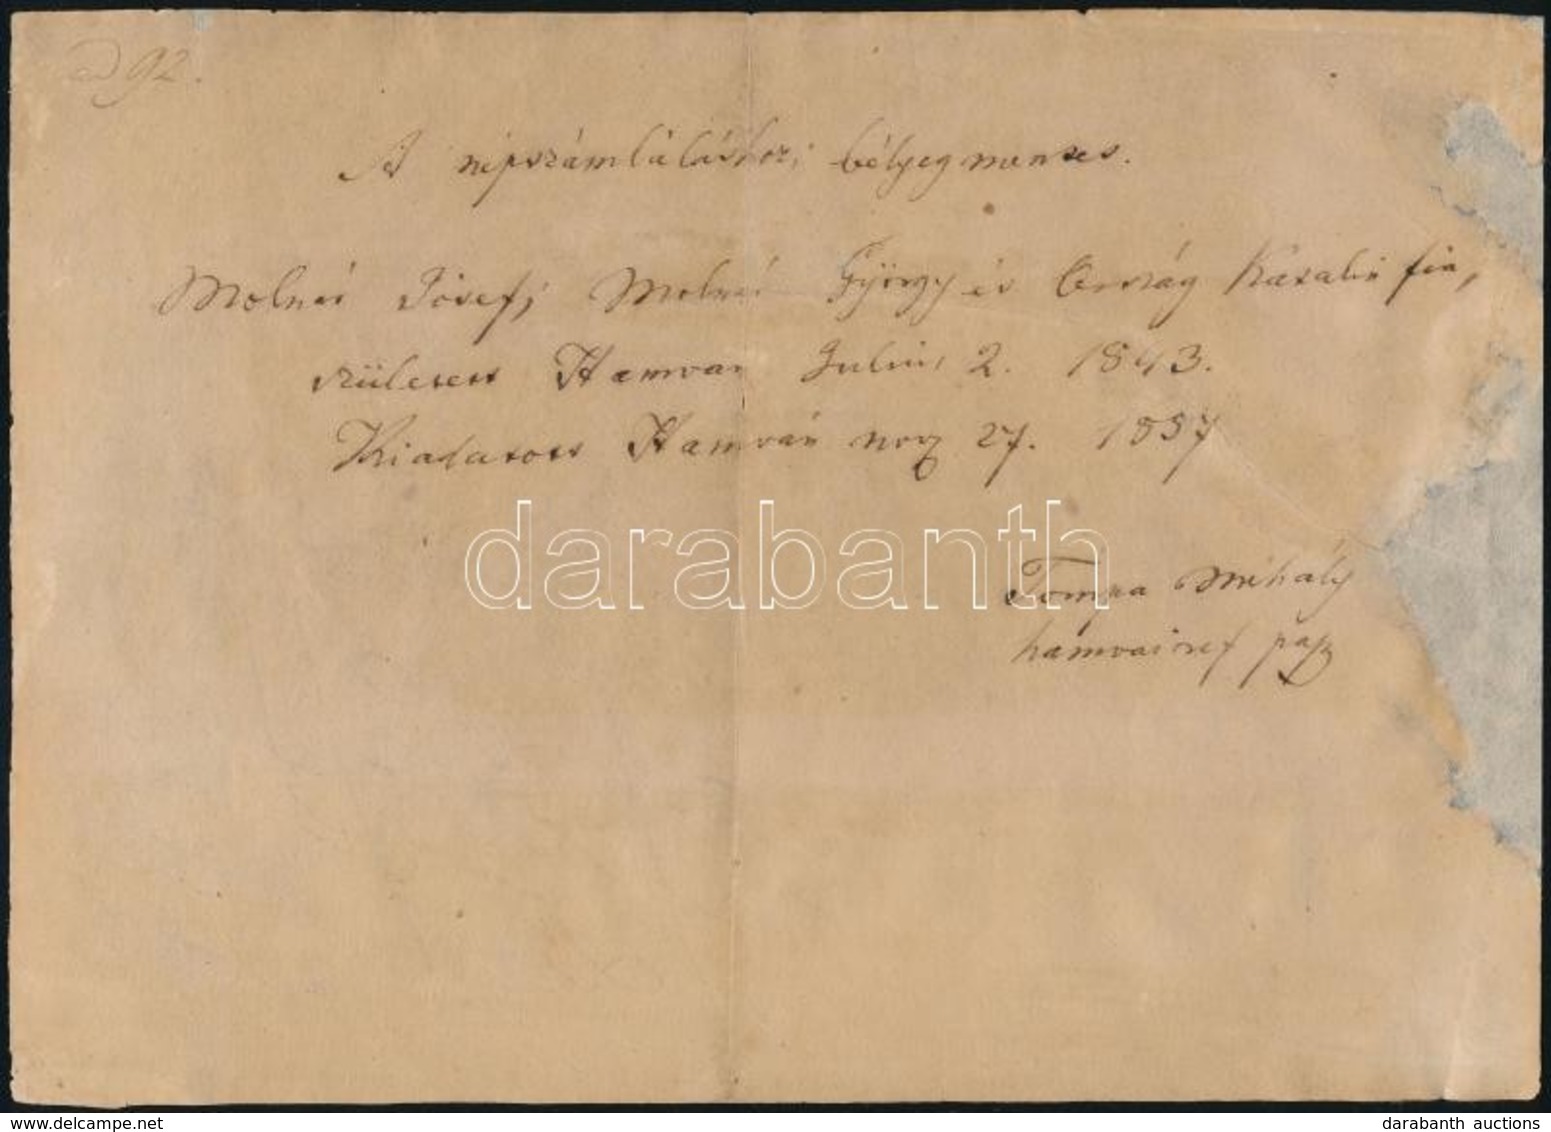 ad 92.
A népszámláláshoz; bélyegmentes.
Molnár József; Molnár György és Ország Katalin fia,
született Hamván Julius 2. 1843.
Kiadatott Hamván nov 27. 1857
darabanth
Tompa Mihály
hamvai ref pap
darabanth auctions